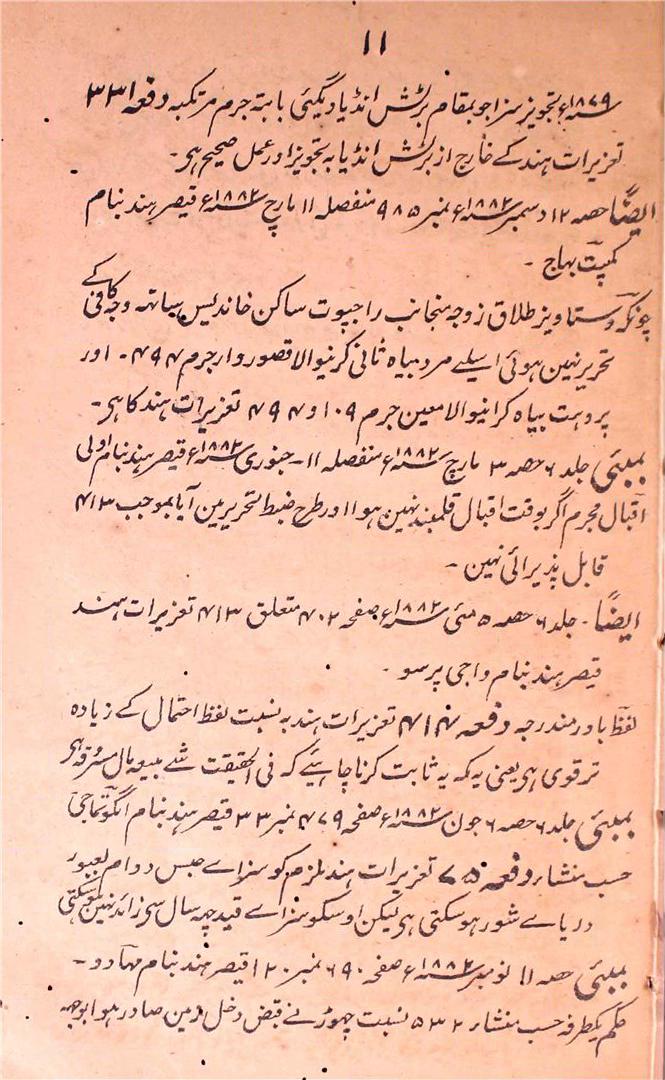 ۱۱
سنہ۱۸۷۹ء تجویز سزا جو بمقام برٹش انڈیا دیگئی بابتہ جرم مرتکبہ دفعہ ۳۳۱
تعزیرات ہند کے خارج از برٹش انڈیا بہ تجویز اور عمل صحیح ہی۔
ایضًا حصہ ۱۲ دسمبر سنہ۱۸۸۲ء نمبر ۹۸۵ منفصلہ ۱۱ مارچ سنہ۱۸۸۲ء قیصر ہند بنام
کمپت بہاج۔
چونکہ دستاویز طلاق زوجہ منجانب راجپوت ساکن خاندیس بیاتھہ وجہ کافی کے
تحریر نہین ہوئی اسلیے مرد بیاہ ثانی کرنیوالا قصوروار جرم ۴۹۴۔ اور
پروہت بیاہ کرانیوالا معین جرم ۱۰۹ و ۴۹۴ تعزیرات ہند کا ہی۔
بمبئی جلد ۶ حصہ ۳ مارچ سنہ۱۸۸۲ء منفصلہ ۱۱۔ جنوری سنہ۱۸۸۲ء قیصر ہند بنام اولی
اقبال مجرم اگر بوقت اقبال قلمبند نہین ہوا اور طرح ضبط تحریر مین آیا بموجب ۴۱۳
قابل پذیرائی نہین۔
ایضًا۔ جلد ۶ حصہ ۵ مئی سنہ۱۸۸۲ء صفحہ ۴۰۲ متعلق ۴۱۳ تعزیرات ہند
قیصر ہند بنام واجی پرسو۔
لفظ باور مندرجہ دفعہ ۴۱۴ تعزیرات ہند بہ نسبت لفظ احتمال کے زیادہ
تر قوی ہی یعنی یہ کہ یہ ثابت کرنا چاہیئے کہ فی الحقیقت شے مبیعہ مال مسرقہ ہی
بمبئی جلد ۶ حصہ ۶ جون سنہ۱۸۸۲ء صفحہ ۴۷۹ نمبر ۳۳ قیصر ہند بنام
حسب منشاء دفعہ ۷۵ تعزیرات ہند ملزم کو سزاے حبس دوام بعبور
دریاے شور ہوسکتی ہی لیکن اوسکو سزاے قید چہہ سال سی زائد نہین ہوسکتی
بمبئی حصہ ۱۱ نومبر سنہ۱۸۸۲ء صفحہ ۶۹۰ نمبر ۱۲۰ قیصر ہند بنام مہادو۔
حکم یکطرفہ حسب منشاء ۵۳۲ نسبت چھوڑنے قبض دخل زمین صادر ہوا بوجہ